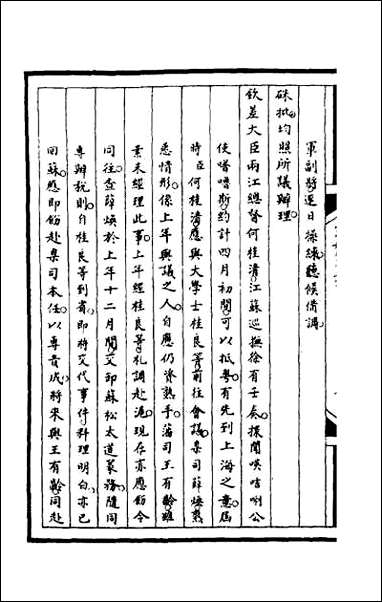 軍副將逐日操練聽候備調
硃批均照所議辦理
欽差大臣兩江總督何桂清江蘇巡撫徐有壬奏探聞嘆咭唎公
使嚕嘶約計四月初間可以抵粵有先到上海之意屆
時臣何桂清應與大學士桂良等前往會議臬司薛煥熟
悉情形係上年與議之人自應仍資熟手藩司王有齡雖
業未經理此事上年經桂良等札調赴滬現存亦應飭令
同往查薛煥於上年十二月間交卸蘇松太道篆務隨同
專辦稅則自桂良等到省即將交代事件料理明白亦已
回蘇應即飭赴臬司本任以專責成將來與王有齡同赴